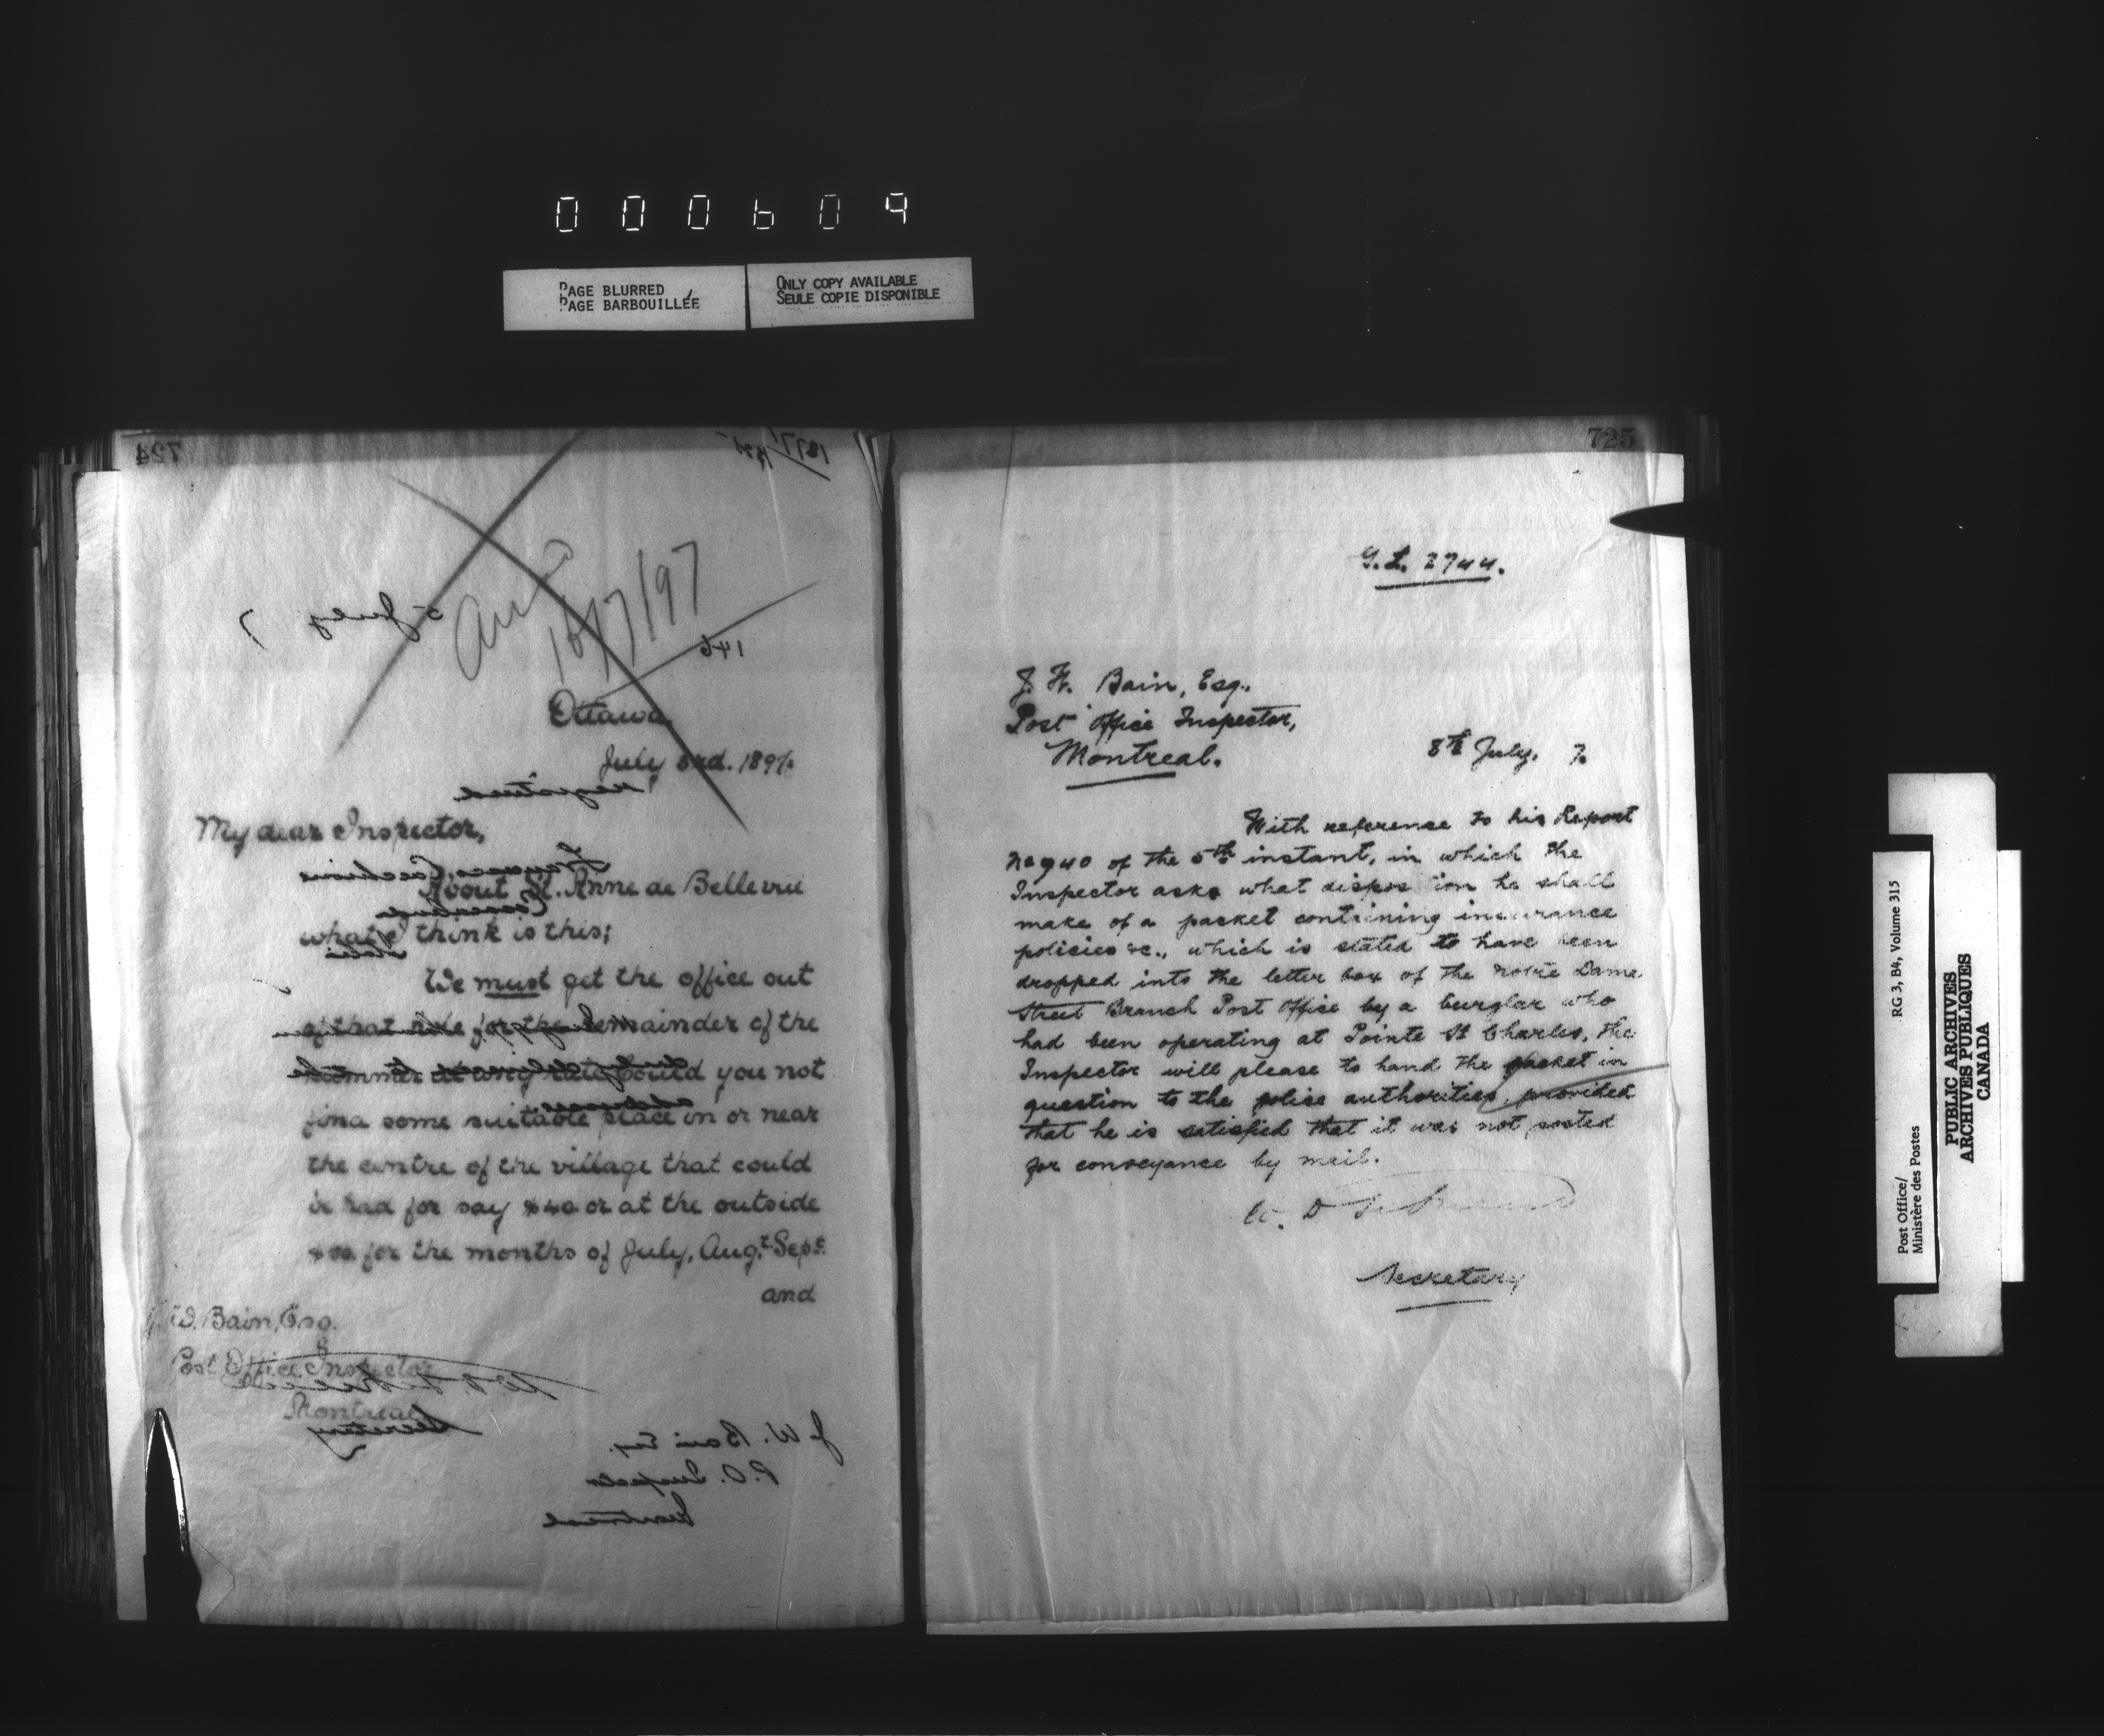 000609
PAGE BLURRED
PAGE BARBOUILLÉE
ONLY COPY AVAILABLE
SEULE COPIE DISPONIBLE
724
5 July 7
10/7/97
146
Ottawa
July 3rd. 1897.
My dear Inspector,
About St. Anne de Bellevue
what I think is this;
We must get the office out
of that hole for the remainder of the
summer at any rate. Could you not
find some suitable place in or near
the centre of the village that could
be had for say $40 or at the outside
for the months of July, Augt. Sept.
and
J. W. Bain, Esq.
Post Office Inspector
Montreal
Secretary
J. W. Bain Esq.
P.O. Inspector
Montreal
725
G.L. 2744.
J. W. Bain, Esq.,
Post Office Inspector,
Montreal.
8th July. 7.
With reference to his Report
No 940 of the 5th instant, in which the
Inspector asks what disposition he shall
make of a packet containing insurance
policies &c., which is stated to have been
dropped into the letter box of the Notre Dame
Street Branch Post Office by a burglar who
had been operating at Pointe St Charles, the
Inspector will please to hand the packet in
question to the police authorities, provided
that he is satisfied that it was not posted
for conveyance by mail.
Secretary
RG 3, B4, Volume 315
Post Office/
Ministère des Postes
PUBLIC ARCHIVES
ARCHIVES PUBLIQUES
CANADA